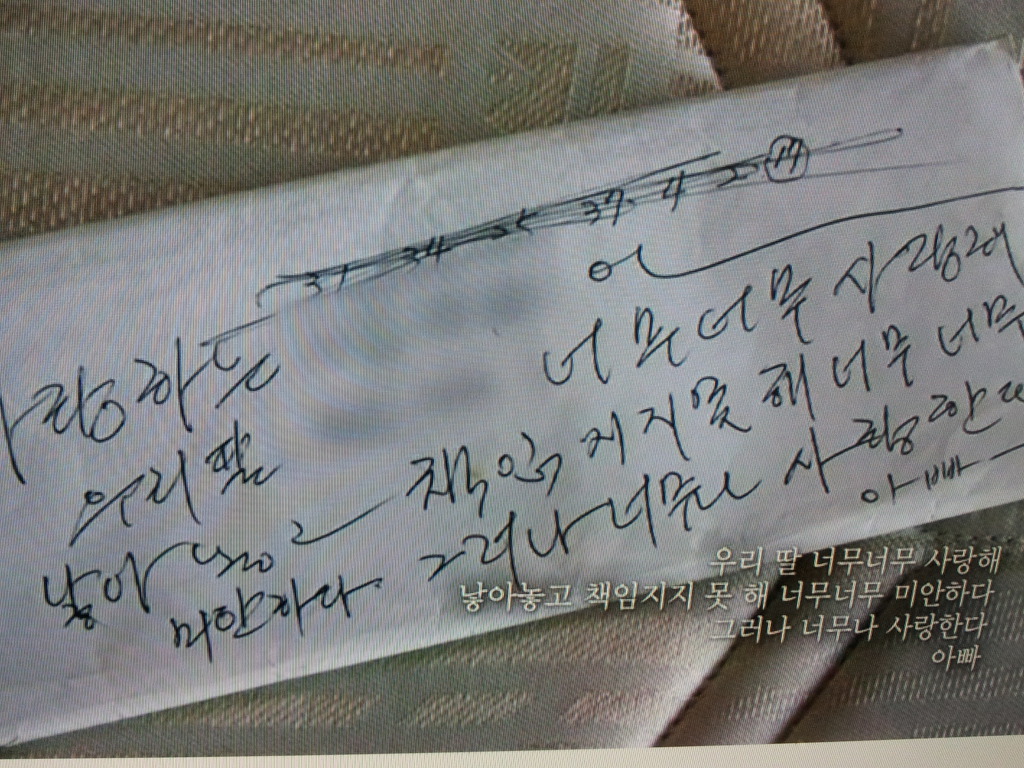 랑하는
어
우리 딸 너무너무 사랑해
낳아놓고 책임지지못해 너무너무
미안하다 그러나 너무나 사랑한다
아빠
우리 딸 너무너무 사랑해
낳아놓고 책임지지 못 해 너무너무 미안하다
그러나 너무나 사랑한다
아빠